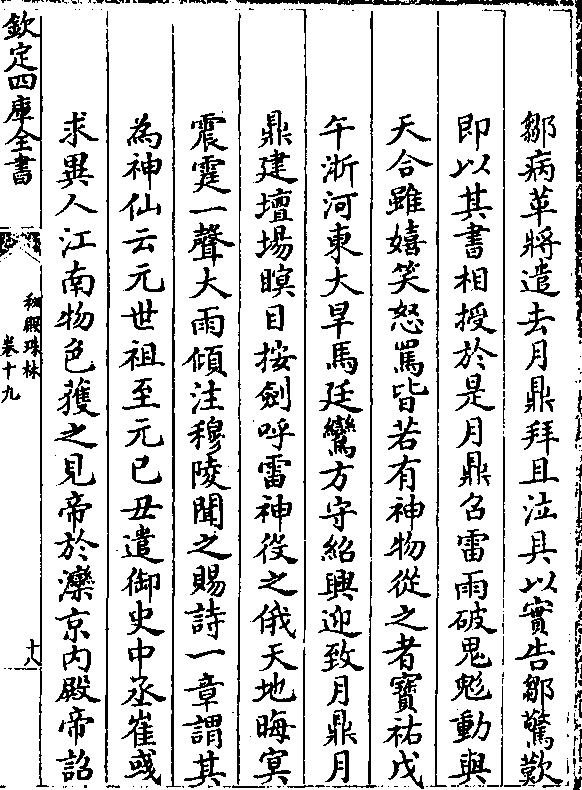 鄒病革將遣去月鼎拜且泣具以實告鄒驚歎
即以其書相授於是月鼎召雷雨破鬼魅動與
天合雖嬉笑怒罵皆若有神物從之者寳祐戊
午浙河東大旱馬廷鸞方守紹興迎致月鼎月
鼎建壇場瞑目按劍呼雷神役之俄天地晦冥
震霆一聲大雨傾注穆陵聞之賜詩一章謂其
為神仙云元世祖至元己丑遣御史中丞崔彧
求異人江南物色獲之見帝於灤京内殿帝詔
欽定四庫全書
秘殿珠林
卷十九
十八